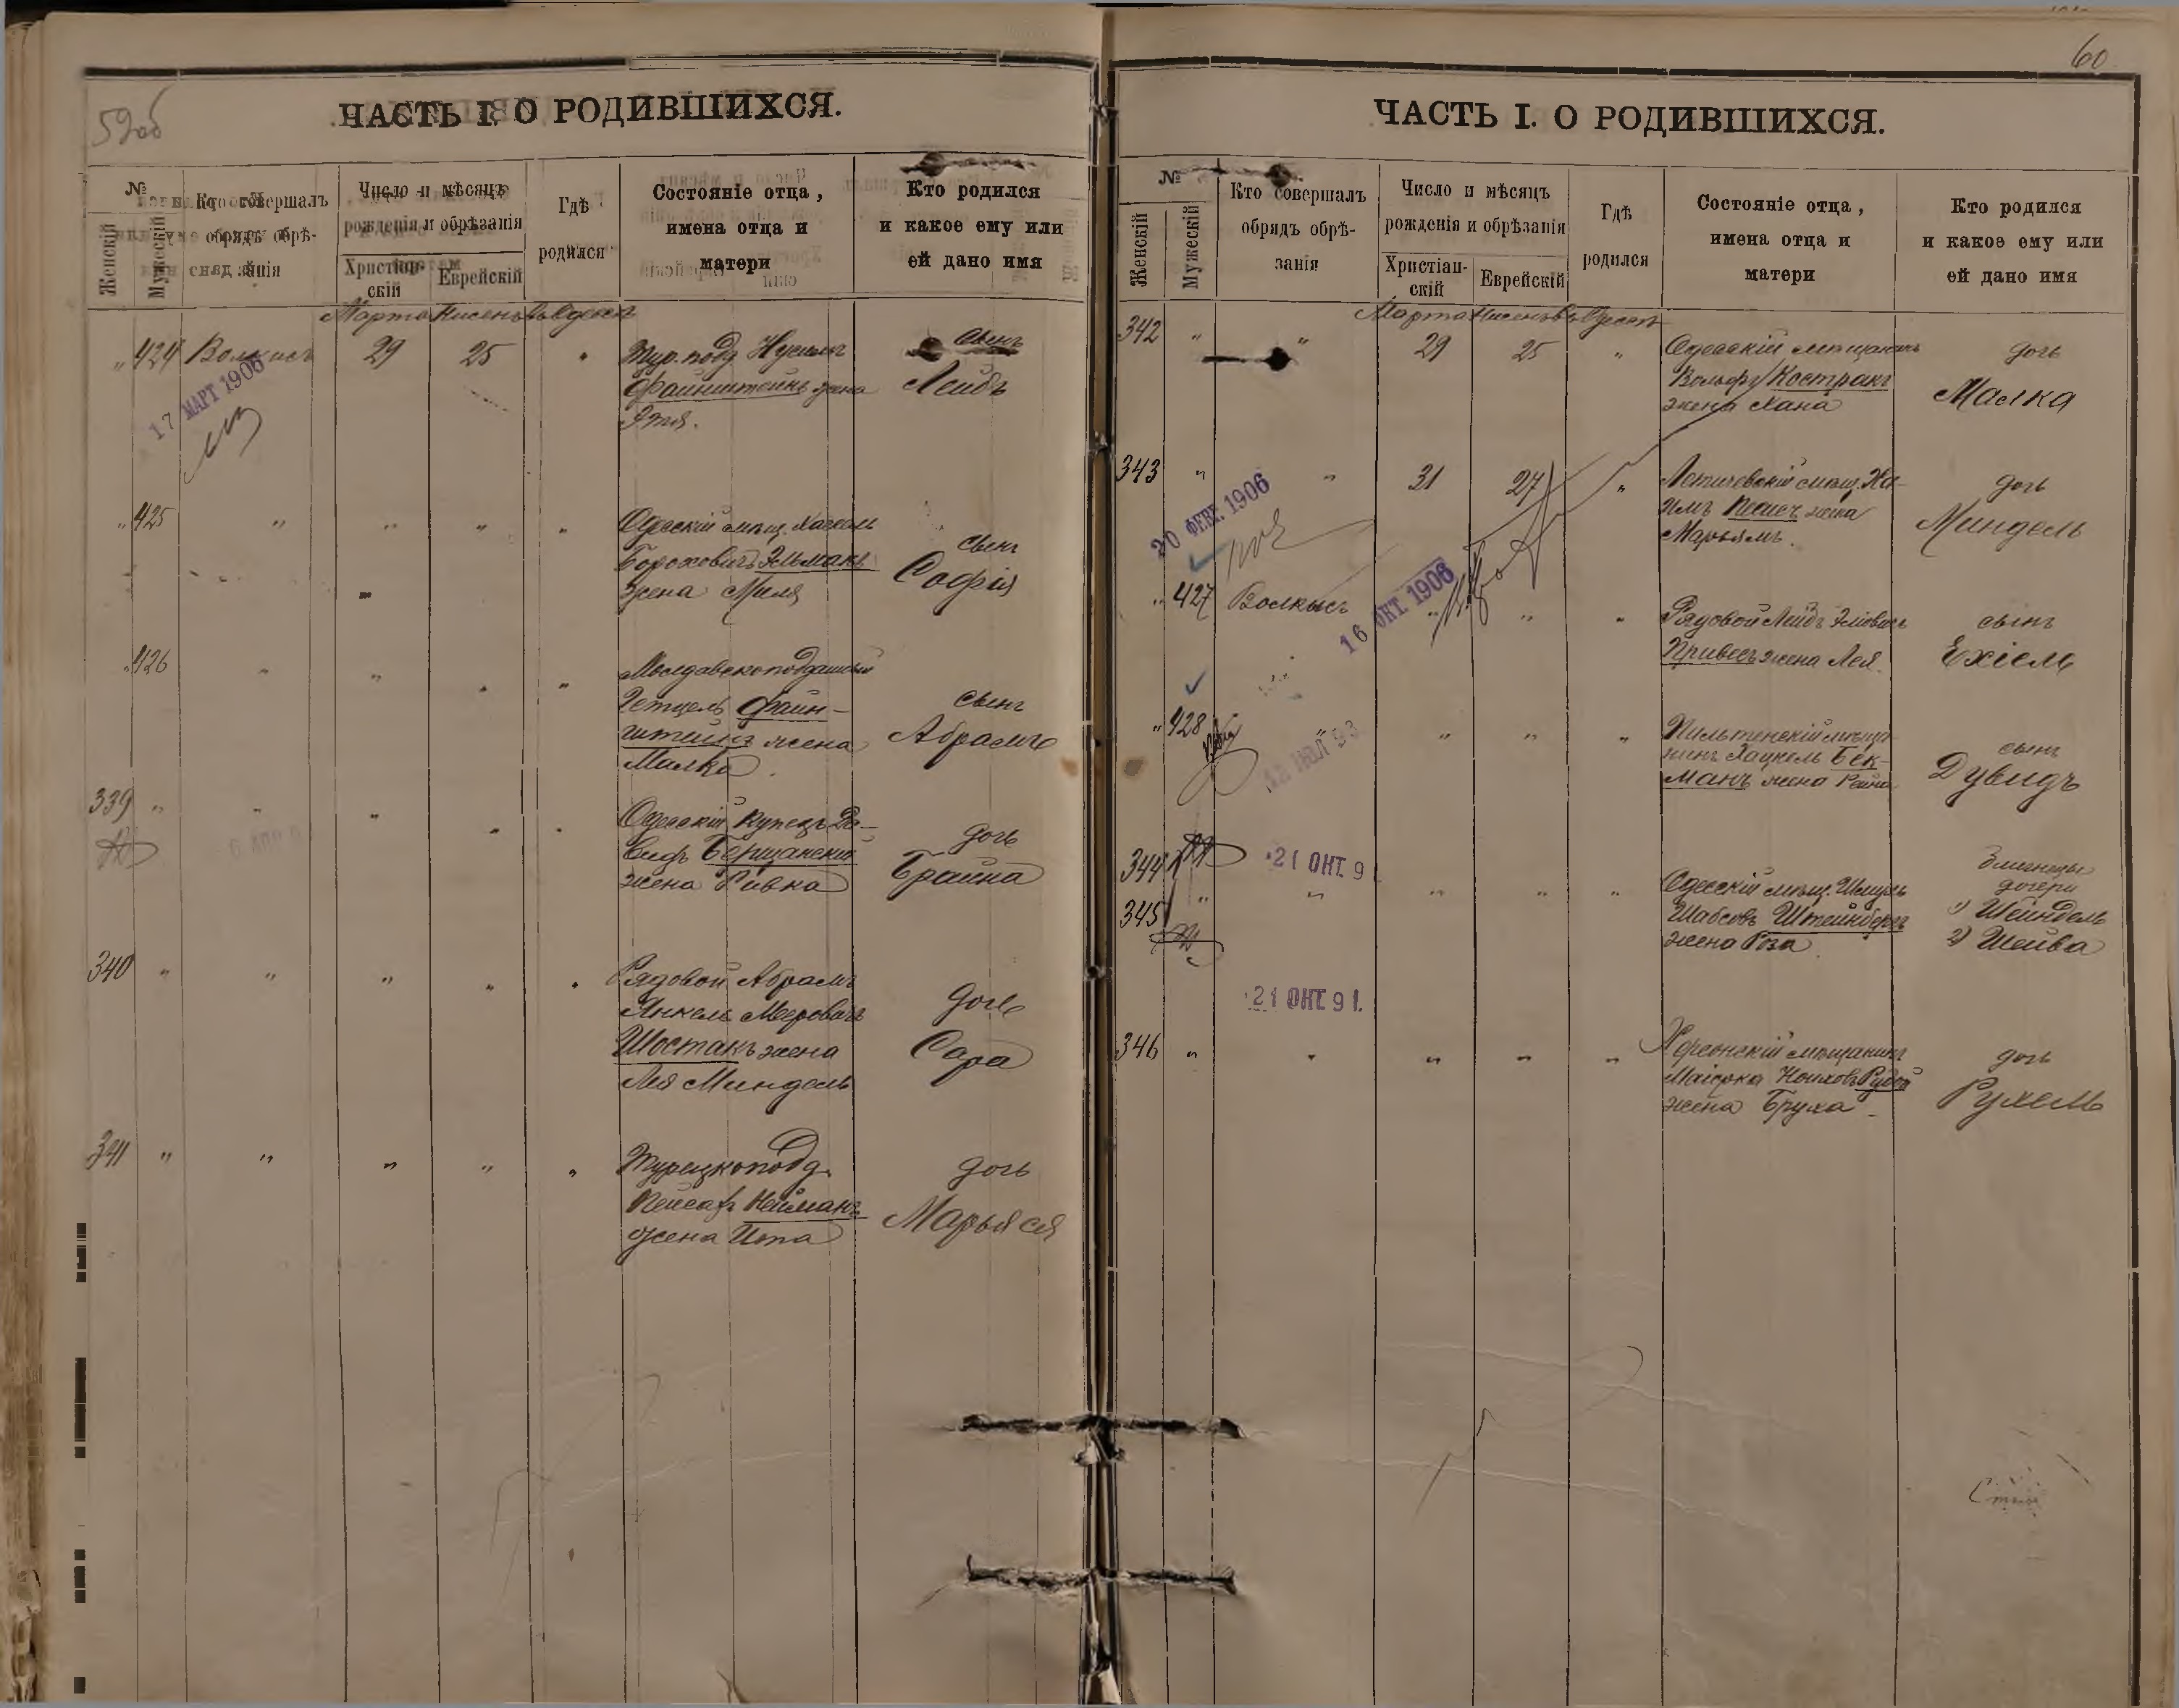 59об
ЧАСТЬ I. О РОДИВШИХСЯ.
№
Женскій
Мужескій
Кто совершалъ обрядъ обрѣзанія
Число и мѣсяцъ рожденія и обрѣзанія
Христіанскій
Еврейскій
Гдѣ родился
Состояніе отца, имена отца и матери
Кто родился и какое ему или ей дано имя
Марта Нисенъ въ Одессѣ
„ 424 Волкисъ 29 25 „
Тур. подд. Нусимъ
Файнштейнъ жена
Этя.
сынъ
Лейбъ
17 МАРТ 1906
„ 425 „ „ „ „
Одесскій мѣщ. Хаскель
Бороховичъ Эльманъ
жена Миля
сынъ
Софія
„ 426 „ „ „ „
Молдавскоподданный
Гетцель Файн-
штейнъ жена
Малка.
сынъ
Абрамъ
339 „ „ „ „ „
Одесскій купецъ Да-
видъ Берщанскій
жена Ривка
дочь
Брайна
340 „ „ „ „ „
Рядовой Абрамъ
Янкель Меровичъ
Шостакъ жена
Лея Миндель
дочь
Сара
341 „ „ „ „ „
Турецкоподд.
Нейманъ
жена Ита
дочь
Марьяся
60
ЧАСТЬ I. О РОДИВШИХСЯ.
№
Женскій
Мужескій
Кто совершалъ обрядъ обрѣзанія
Число и мѣсяцъ рожденія и обрѣзанія
Христіанскій
Еврейскій
Гдѣ родился
Состояніе отца, имена отца и матери
Кто родился и какое ему или ей дано имя
Марта Нисенъ въ Одессѣ
342 „ „ 29 25 „
Одесскій мѣщанинъ
Вольфъ Костракъ
жена Хана
дочь
Малка
343 „ „ 31 27 „
Летичевскій мѣщ. Ха-
имъ жена
Марьямъ.
дочь
Миндель
20 ФЕВР. 1906
„ 427 Волкысъ „ „ „
16 ОКТ. 1906
Рядовой Лейбъ Эліовичъ
Привесъ жена Лея.
сынъ
Ехіель
„ 428 „ „ „ „
Пильтенскій мѣща-
нинъ Хацкель Бек-
манъ жена Рейна
сынъ
Дувидъ
344
345 „ „ „ „ „
21 ОКТ. 91
Одесскій мѣщ. Шмуль
Шабсовъ Штейнбергъ
жена Роза.
близнецы
дочери
1) Шейндель
2) Шейва
21 ОКТ. 91.
346 „ „ „ „ „
Херсонскій мѣщанинъ
Маіорка Нохимовъ Рудой
жена Бруха -
дочь
Рухель